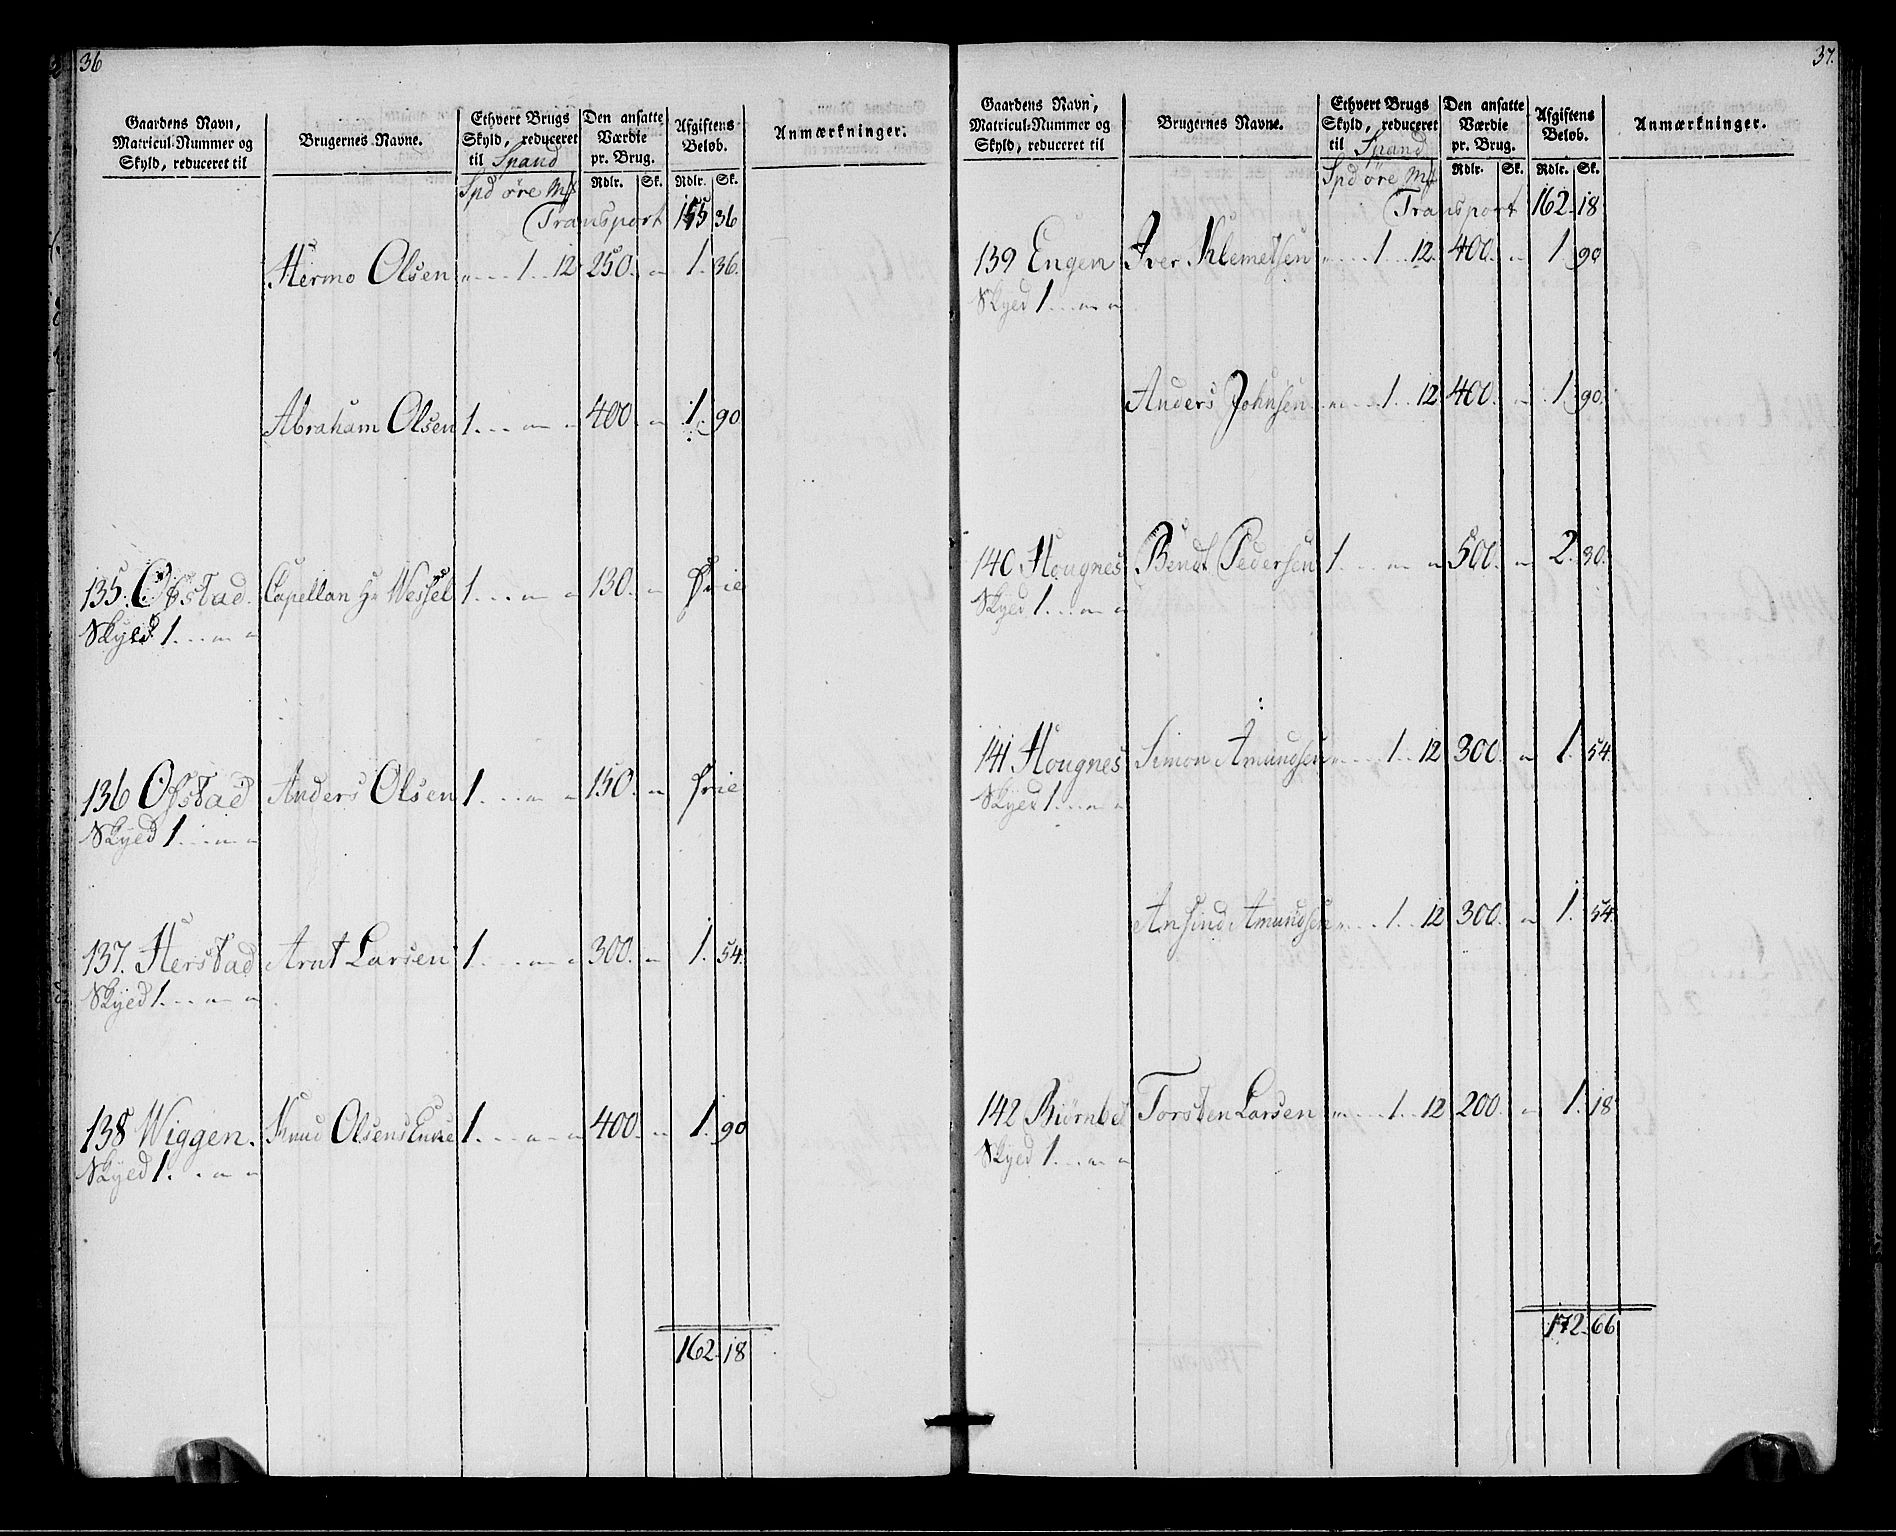 36
Gaardens Navn, Matricul-Nummer og Skyld, reduceret til
Brugernes Navne.
Ethvert Brugs Skyld, reduceret til Spand
Den ansatte Værdie pr. Brug.
Afgiftens Beløb.
Anmærkninger.
Spd øre Mk Rdlr. Sk. Rdlr. Sk.
Transport 155 36
Hermo Olsen „ 1 12 250. „ 1. 36.
Abraham Olsen 1. „ „ 400. „ 1. 90.
135. Ofstad. Capellan Hr Wessel 1. „ „ 130. „ frie
Skyld 1. „ „
136 Ofstad Anders Olsen 1. „ „ 150. „ frie
Skyld 1. „ „
137. Herstad Arnt Larsen 1. „ „ 300. „ 1. 54.
Skyld 1. „ „
138 Wiggen. Knud Olsens Enke 1. „ „ 400. „ 1. 90
Skyld 1. „ „
162. 18
37.
Gaardens Navn, Matricul-Nummer og Skyld, reduceret til
Brugernes Navne.
Ethvert Brugs Skyld, reduceret til Spand
Den ansatte Værdie pr. Brug.
Afgiftens Beløb.
Anmærkninger.
Spd øre Mk Rdlr. Sk. Rdlr. Sk.
Transport 162. 18
139 Engen Iver Klemetsen „ 1 12. 400. „ 1. 90
Skyld 1. „ „
Anders Johnsen „ 1. 12 400. „ 1. 90.
140 Hougnes Bendt Pedersen 1. „ „ 500. „ 2. 30.
Skyld 1. „ „
141 Hougnes Simon Amundsen „ 1. 12 300. „ 1. 54.
Skyld 1. „ „
Ansind Amundsen „ 1. 12 300. „ 1. 54.
142 Torsten Larsen „ 1. 12 200. „ 1. 18
Skyld 1. „ „
172. 66